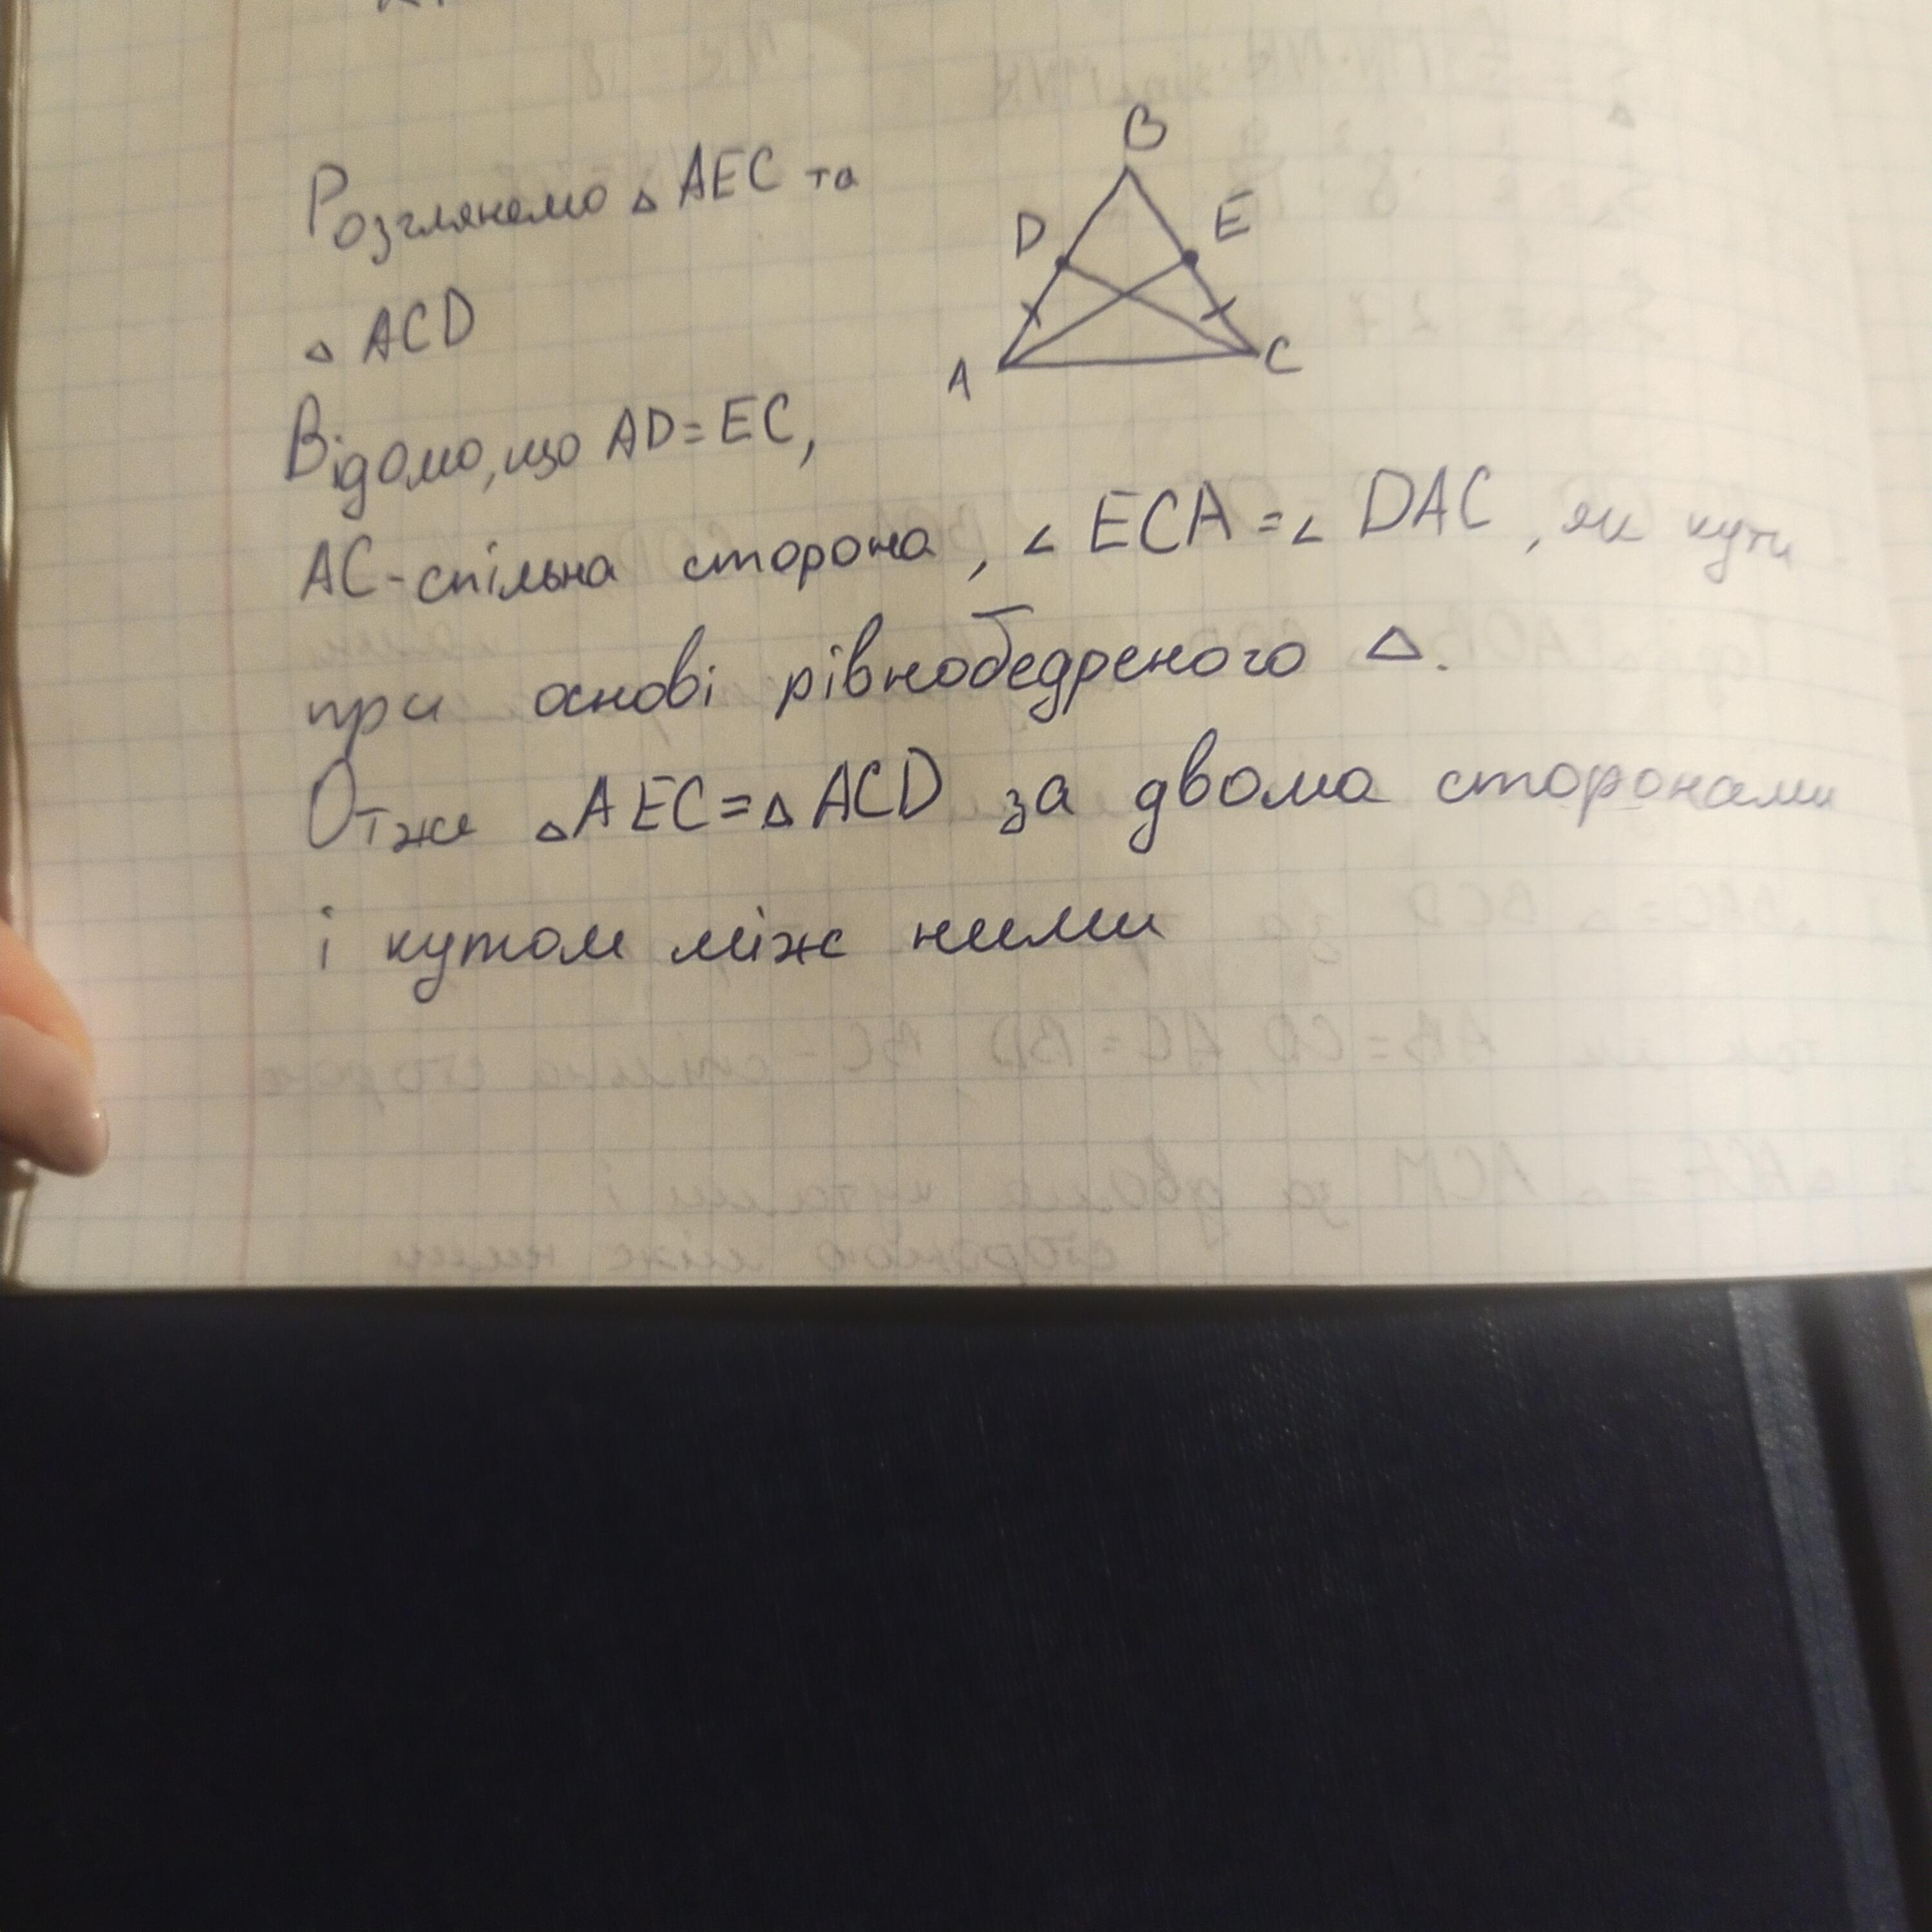 Розглянемо △ AEC та
△ ACD
Відомо, що AD=EC,
AC-спільна сторона, ∠ ECA=∠ DAC, як кути
при основі рівнобедреного △.
Отже △AEC=△ACD за двома сторонами
і кутом між ними
B
D
E
A
C